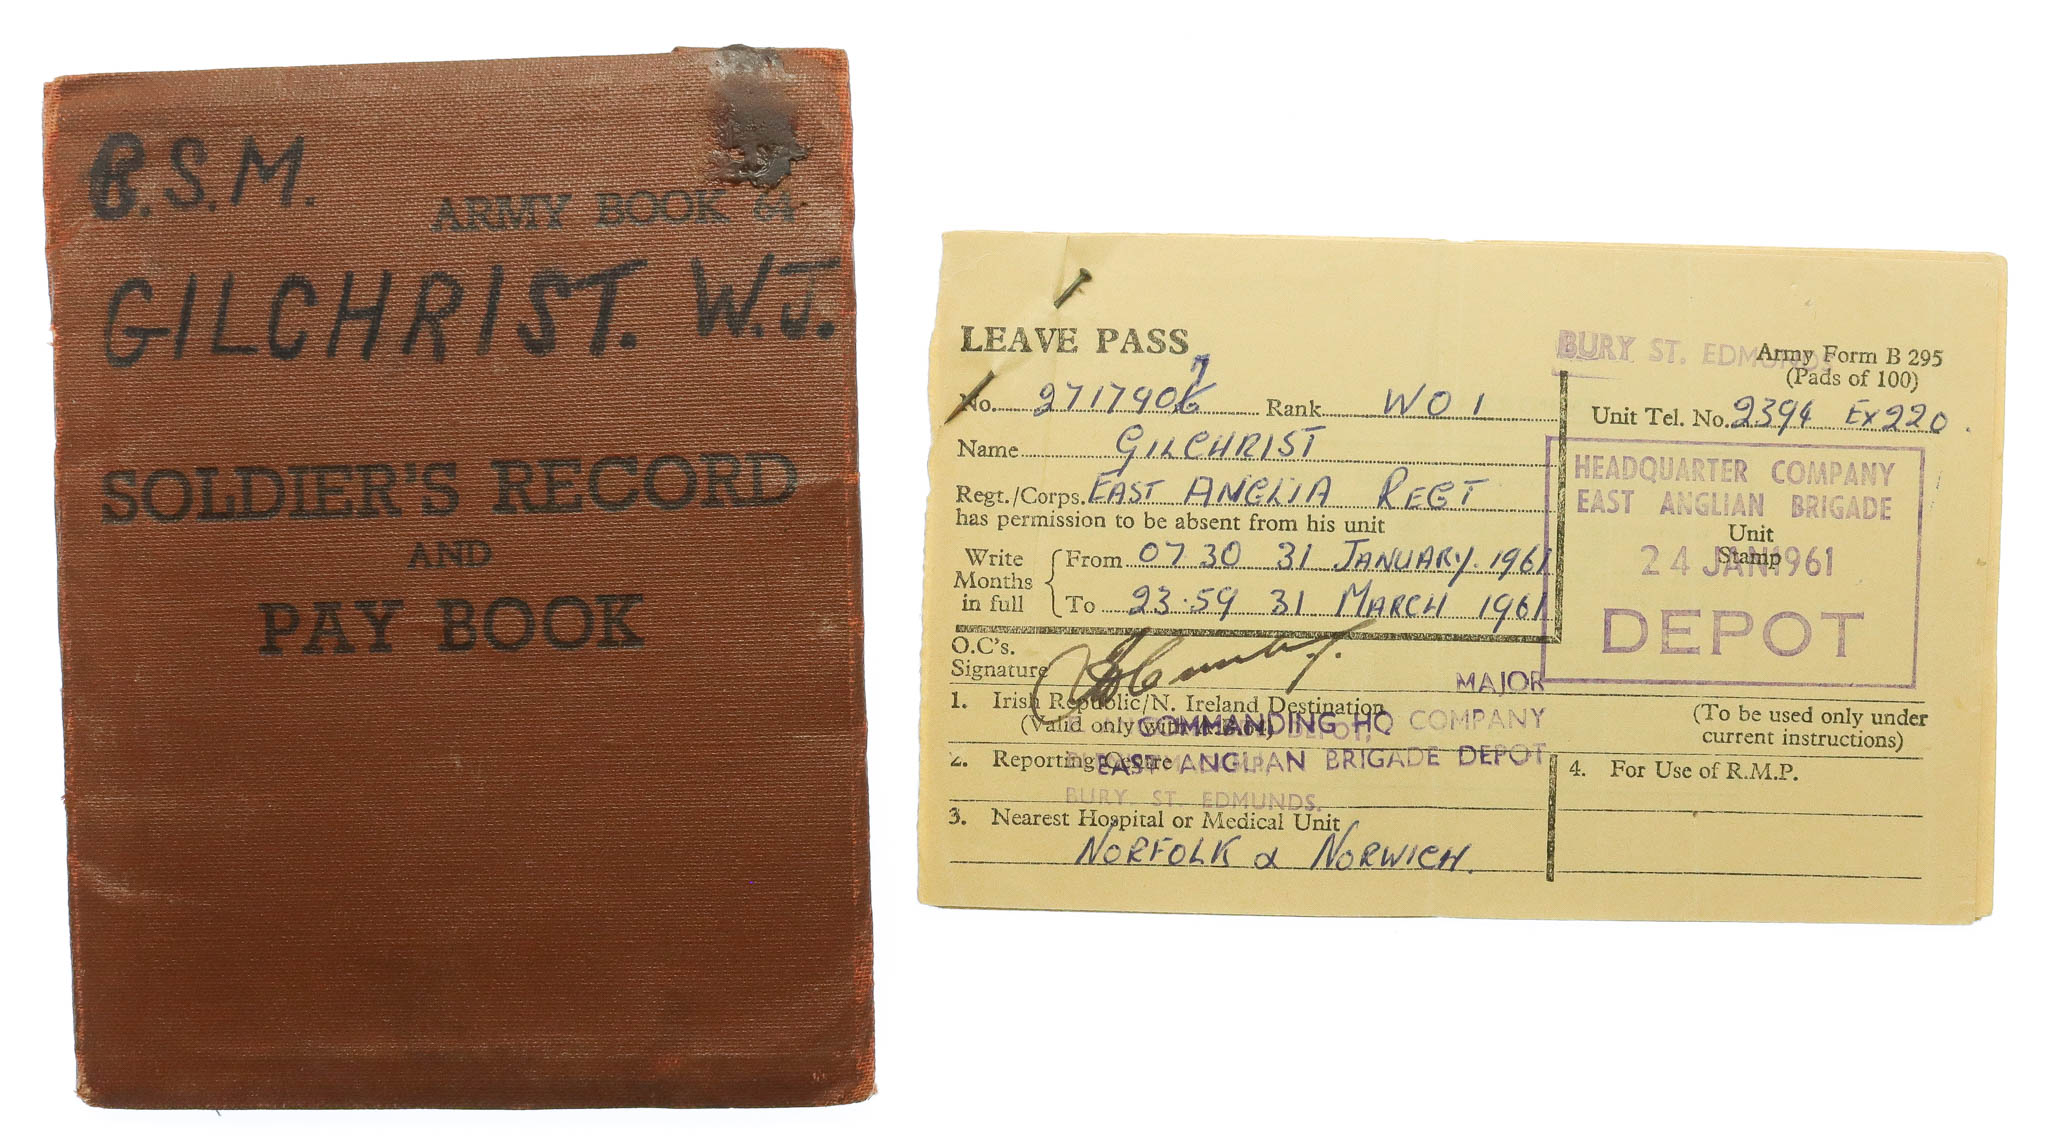 R.S.M.
ARMY BOOK 64
GILCHRIST. W.J.
SOLDIER'S RECORD
AND
PAY BOOK
LEAVE PASS
BURY ST. EDMUNDS
Army Form B 295
(Pads of 100)
No. 27179067 Rank WO 1
Unit Tel. No. 2394 Ex 220.
Name GILCHRIST
Regt./Corps. EAST ANGLIA REGT
has permission to be absent from his unit
Write Months in full
From 07 30 31 JANUARY. 1961
To 23.59 31 MARCH 1961
HEADQUARTER COMPANY
EAST ANGLIAN BRIGADE
Unit
Stamp
24 JAN 1961
DEPOT
O.C's.
Signature
MAJOR
1. Irish Republic/N. Ireland Destination
(Valid only with
COMMANDING HQ COMPANY
DEPOT,
(To be used only under
current instructions)
2. Reporting Centre
EAST ANGLIAN BRIGADE DEPOT
BURY. ST. EDMUNDS.
3. Nearest Hospital or Medical Unit
NORFOLK & NORWICH.
4. For Use of R.M.P.